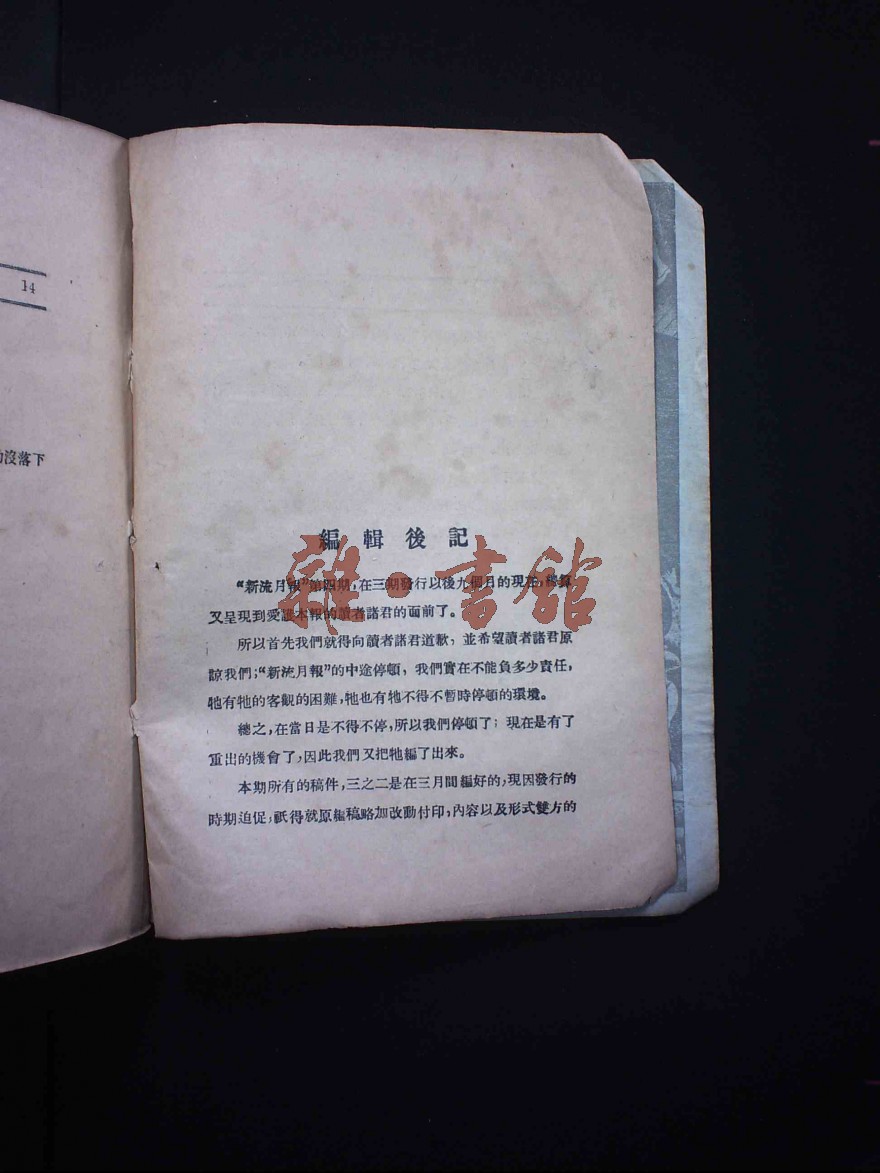 14
的沒落下
編輯後記
“新流月報”第四期,在三期發行以後九個月的現在,總算
又呈現到愛護本報的讀者諸君的面前了。
所以首先我們就得向讀者諸君道歉,並希望讀者諸君原
諒我們;“新流月報”的中途停頓,我們實在不能負多少責任,
牠有牠的客觀的困難,牠也有牠不得不暫時停頓的環境。
總之,在當日是不得不停,所以我們停頓了;現在是有了
重出的機會了,因此我們又把牠編了出來。
本期所有的稿件,三之二是在三月間編好的,現因發行的
時期迫促,祇得就原編稿略加改動付印,內容以及形式雙方的
雜·書館